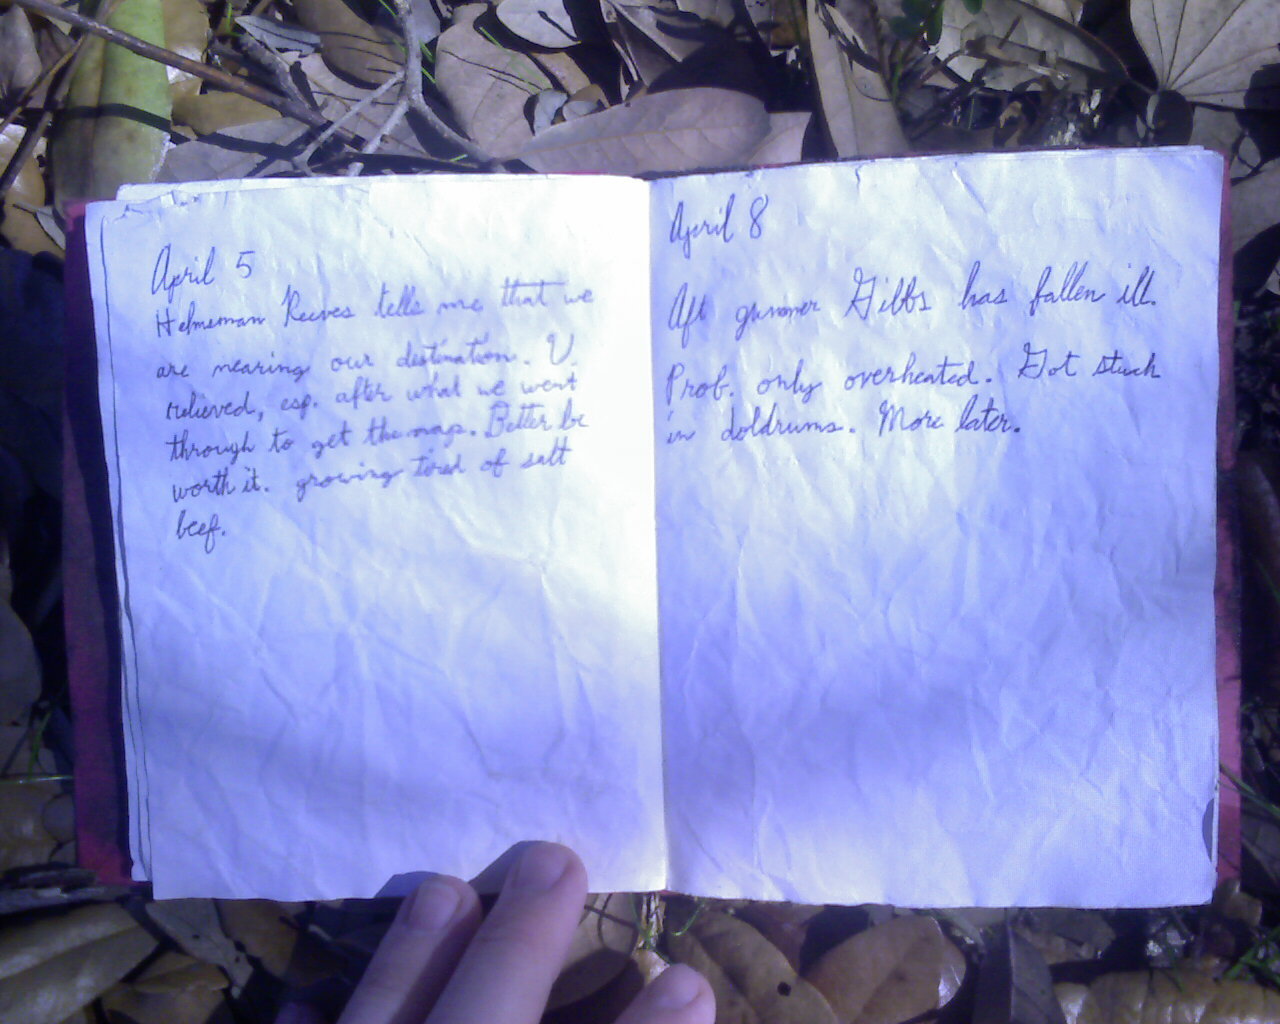 April 5
Helmsman Reeves tells me that we
are nearing our destination. V.
relieved, esp. after what we went
through to get the map. Better be
worth it. growing tired of salt
beef.
April 8
Aft gunner Gibbs has fallen ill.
Prob. only overheated. Got stuck
in doldrums. More later.